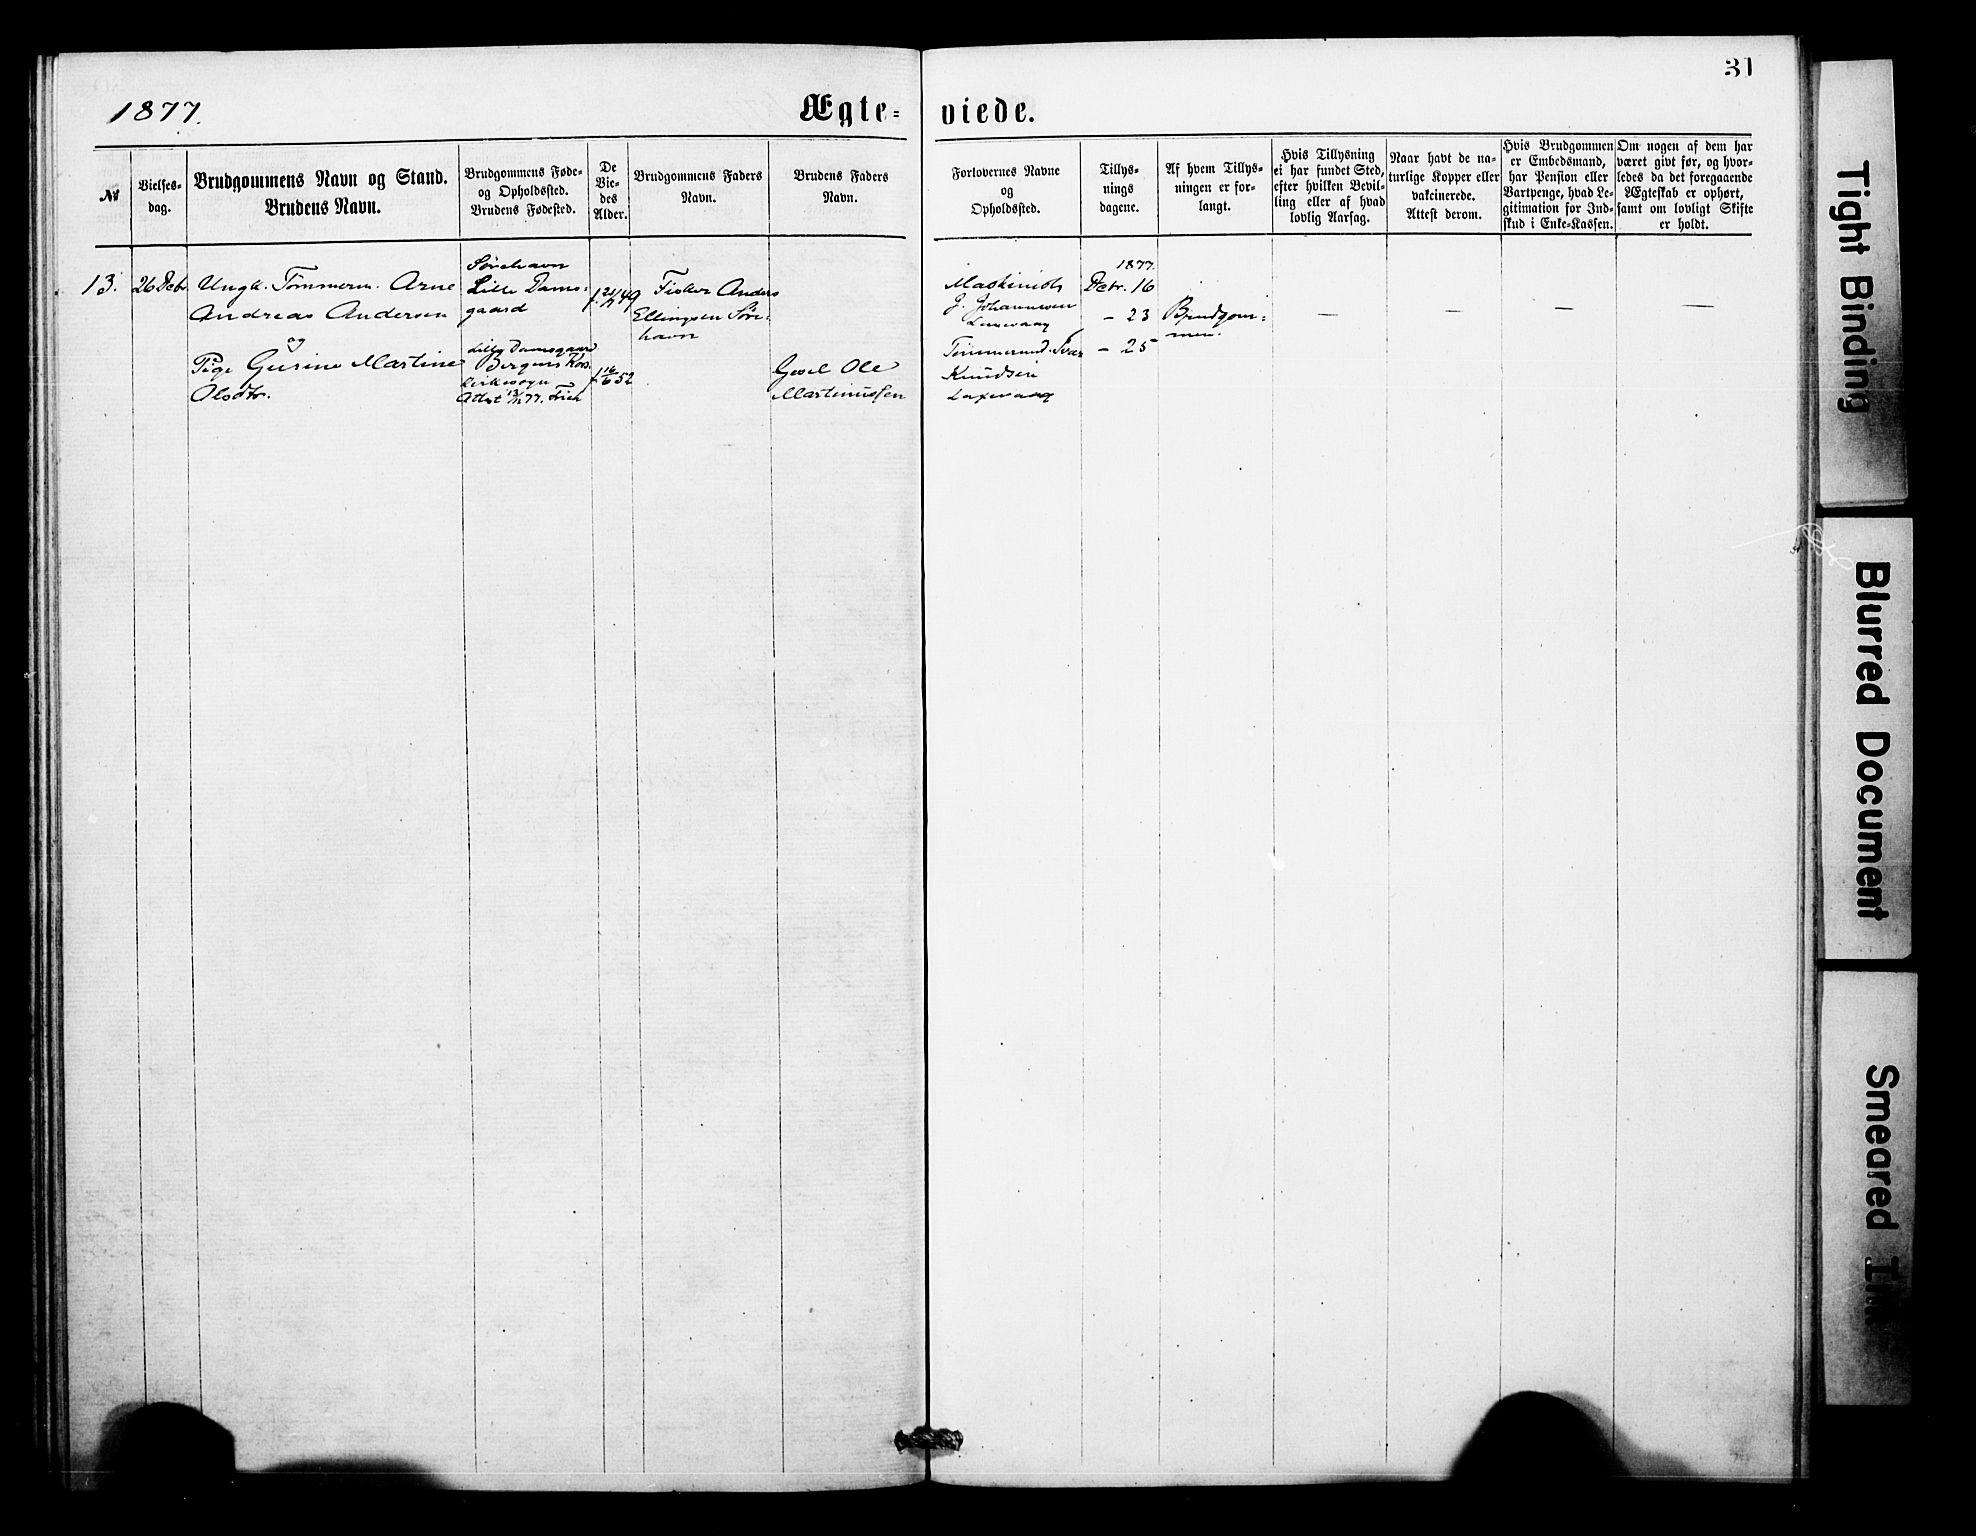 31
1877.
Ægte= viede.
№
Vielses=
dag.
Brudgommens Navn og Stand.
Brudens Navn.
Brudgommens Føde=
og Opholdssted.
Brudens Fødested.
De
Vie=
des
Alder.
Brudgommens Faders
Navn.
Brudens Faders
Navn.
Forlovernes Navne
og
Opholdssted.
Tillys=
nings
dagene.
Af hvem Tillys=
ningen er for=
langt.
Hvis Tillysning
ei har fundet Sted,
efter hvilken Bevil=
ling eller af hvad
lovlig Aarsag.
Naar havt de na=
turlige Kopper eller
vakcinerede.
Attest derom.
Hvis Brudgommen
er Embedsmand,
har Pension eller
Vartpenge, hvad Le=
gitimation for Ind=
skud i Enke=Kassen.
Om nogen af dem har
været givt før, og hvor=
ledes da det foregaaende
Ægteskab er ophørt,
samt om lovligt Skifte
er holdt.
13.
26 Decbr
Ungk. Tømmerm. Arne
Andreas Andersen
og
Pige Gurine Martine
Olsdtr.
Sørehavn
Lille Dams=
gaard
Lille Damsgaard
Bergens Kors
kirkesogn
Attest 13/12 77.
49
f. 16/6 52
Fisker Anders
Ellingsen Søre=
havn
Ole
Martinussen
Maskinist
J. Johannesen
Laxevaag
Tømmermd. Ivar
Knudsen
Laxevaag
1877.
Decbr. 16
– 23
– 25
Brudgom=
men.
—
—
—
—
Tight Binding
Blurred Document
Smeared Ink